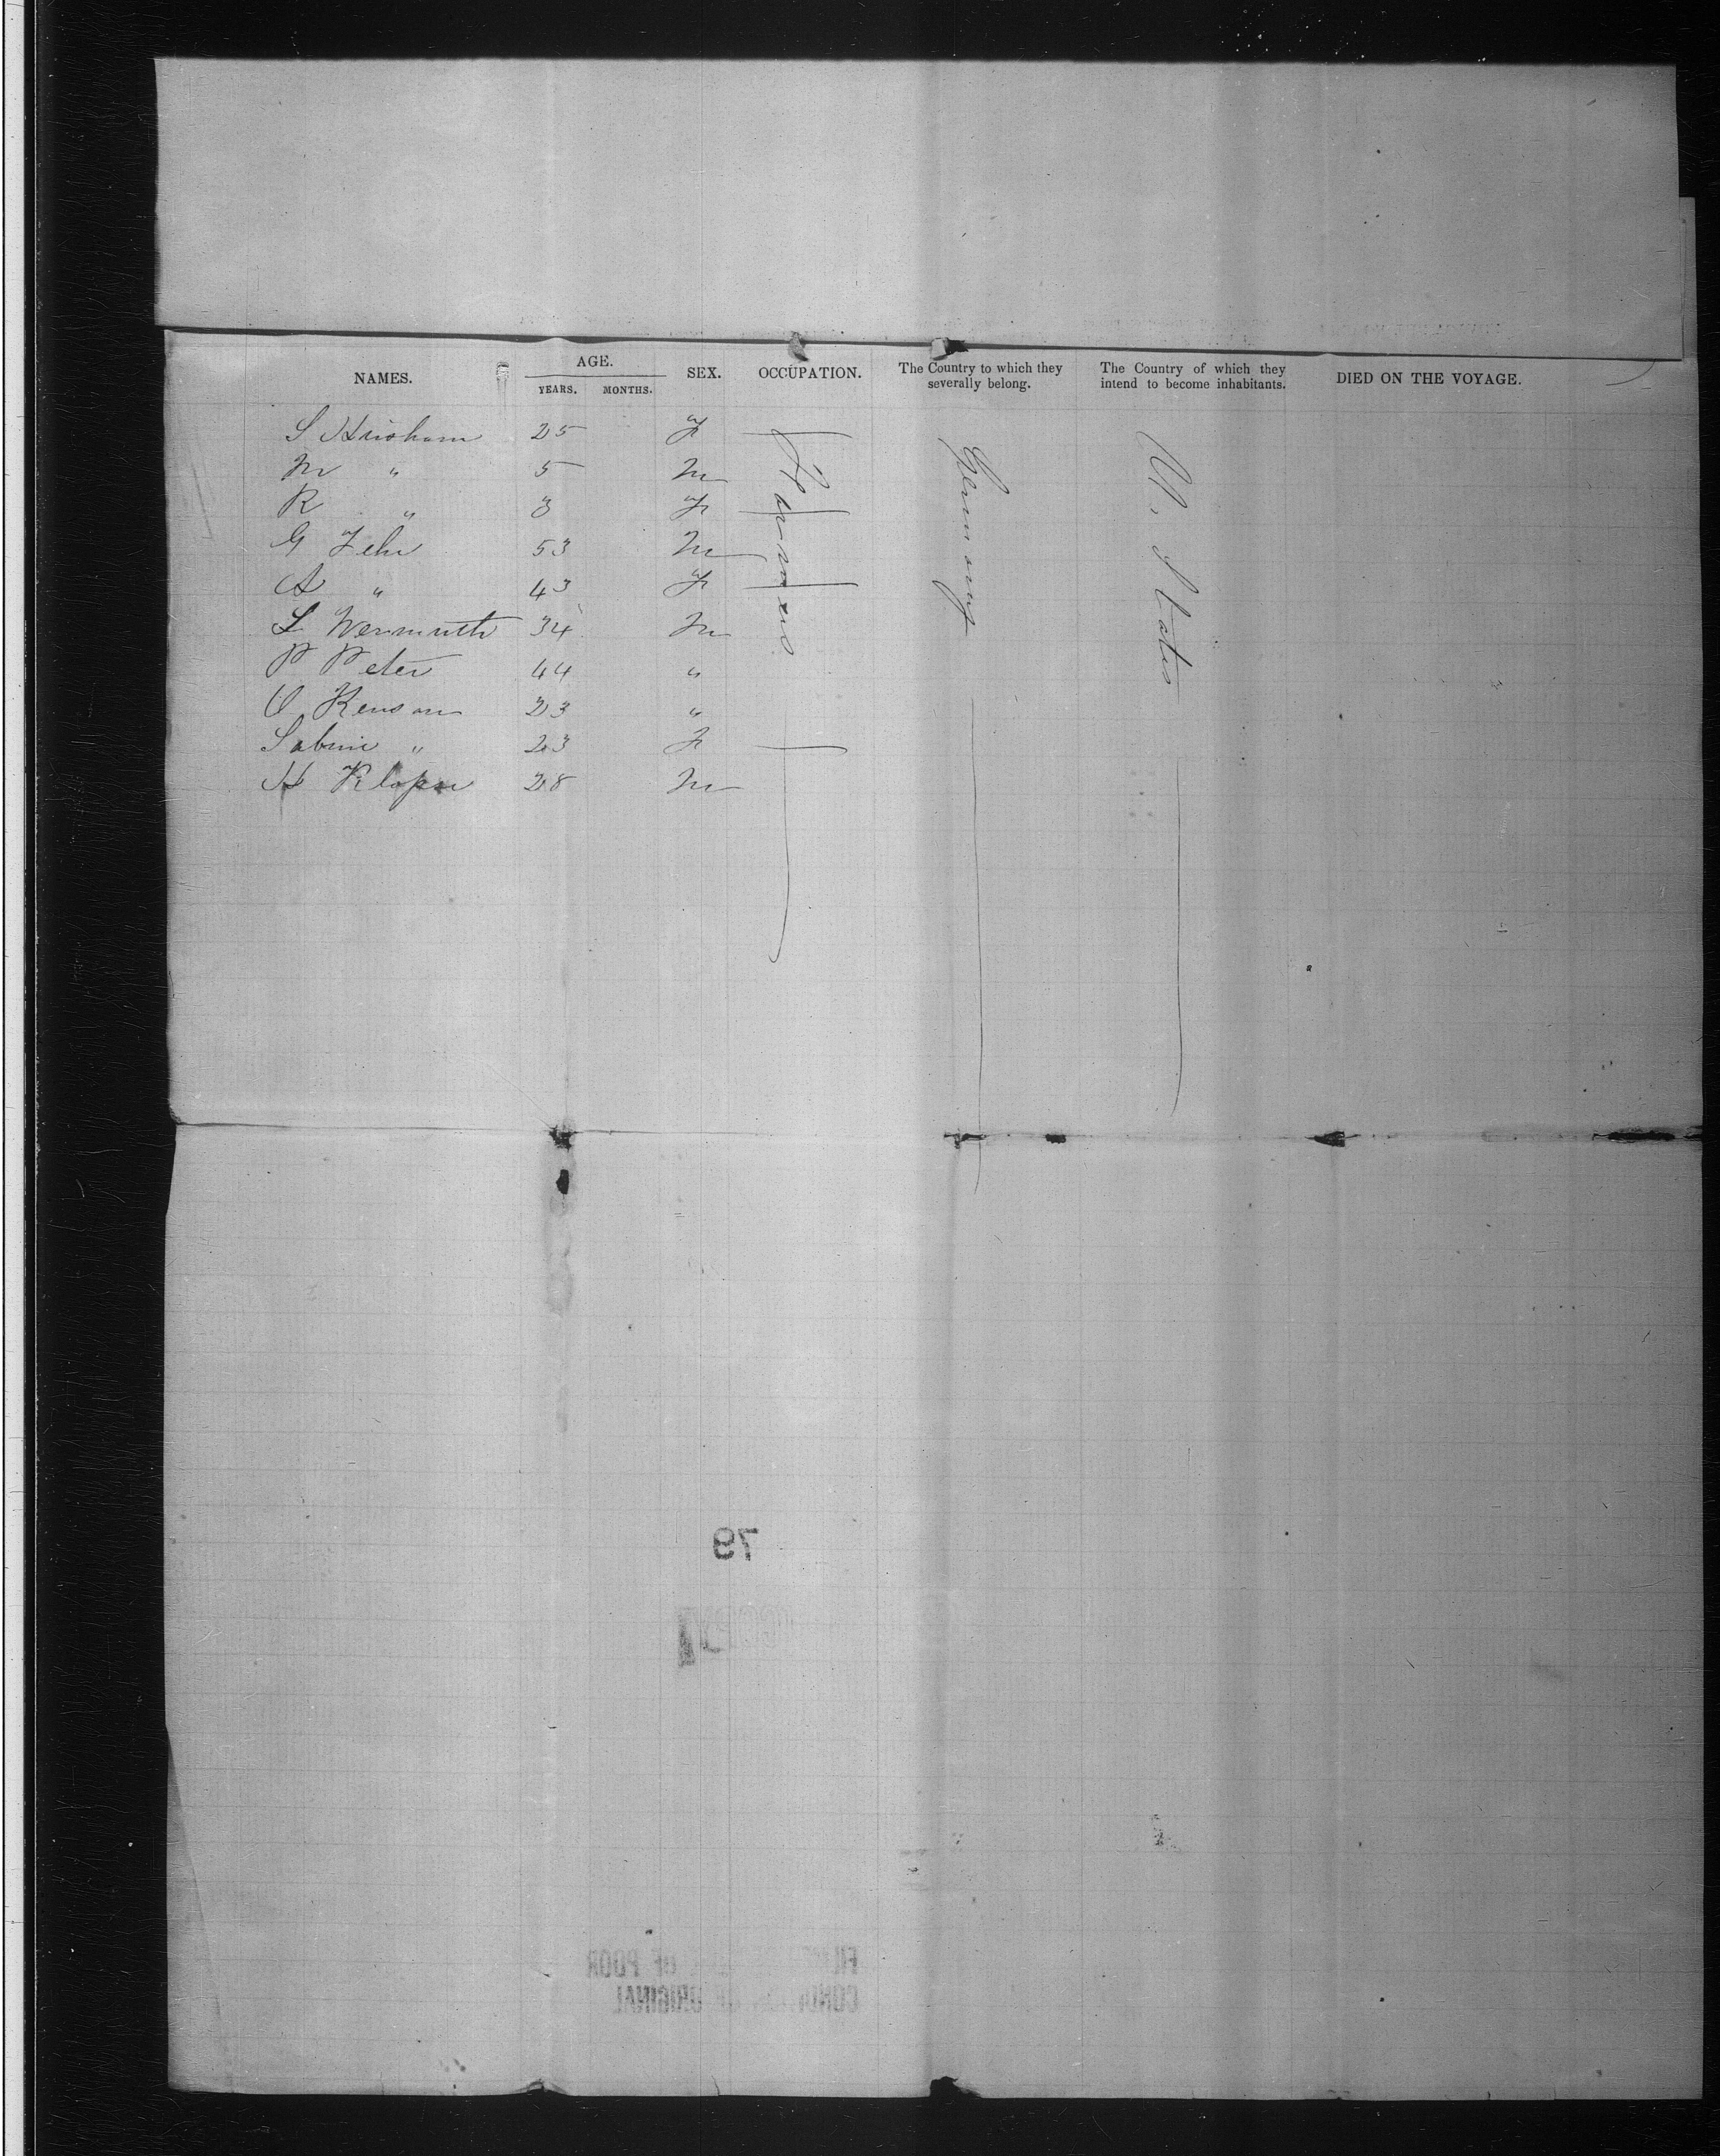 NAMES. AGE. SEX. OCCUPATION. The Country to which they severally belong. The Country of which they intend to become inhabitants. DIED ON THE VOYAGE.
YEARS. MONTHS.
S 25 F
M " 5 M
R " 3 F
G Fehr 53 M
A " 43 F
L Wermuth 34 M
P Peter 44 "
O 23 "
Sabine " 23 F
H 28 M
Farmers
Germany
U. States
79
COPY
OF POOR
CONDITION OF ORIGINAL